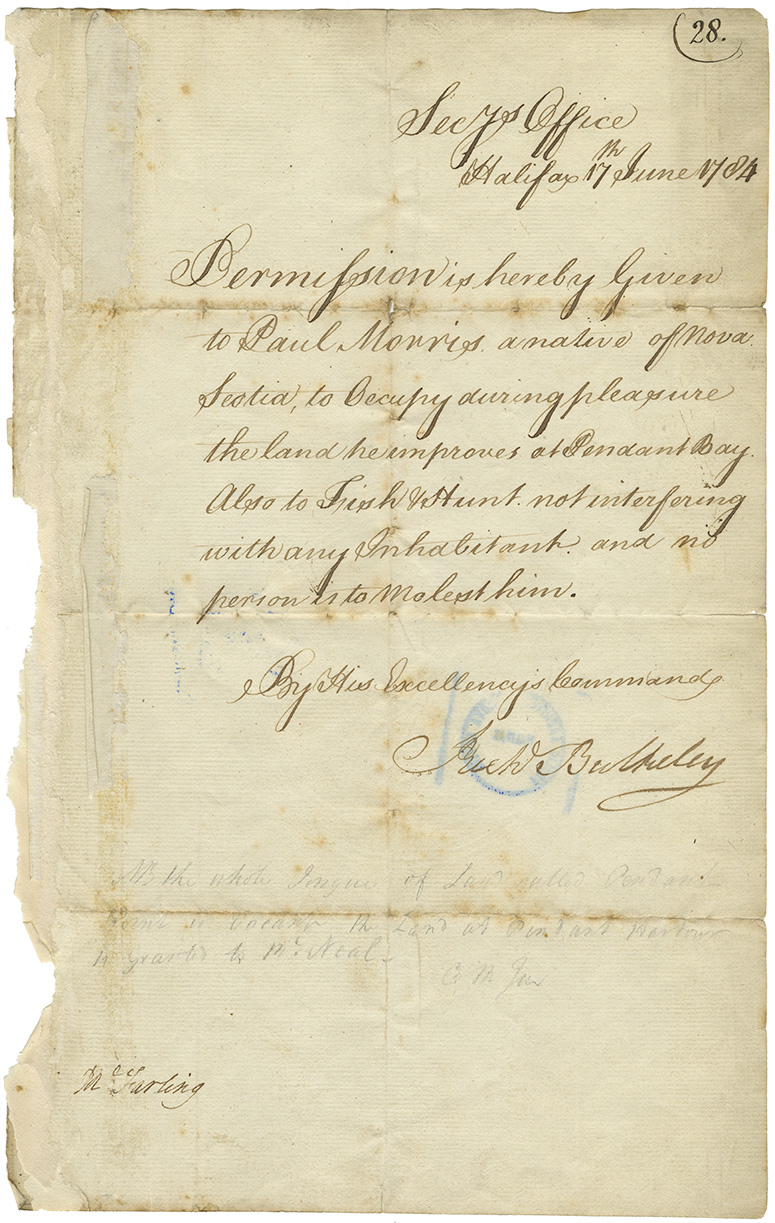 28.
Secys Office
Halifax 17th June 1784
Permission is hereby Given
to Paul Morris. a native of Nova
Scotia, to Occupy during pleasure
the land he improves at Pendant Bay.
Also to Fish & Hunt. not interfering
with any Inhabitant. and no
person is to Molest him.
By His Excellency's Command
Richd Bulkeley
NB the whole Tongue of Land called Pendant
Point is Vacant the Land at Pendant Harbour
is granted to Mc Neal
C M Jur